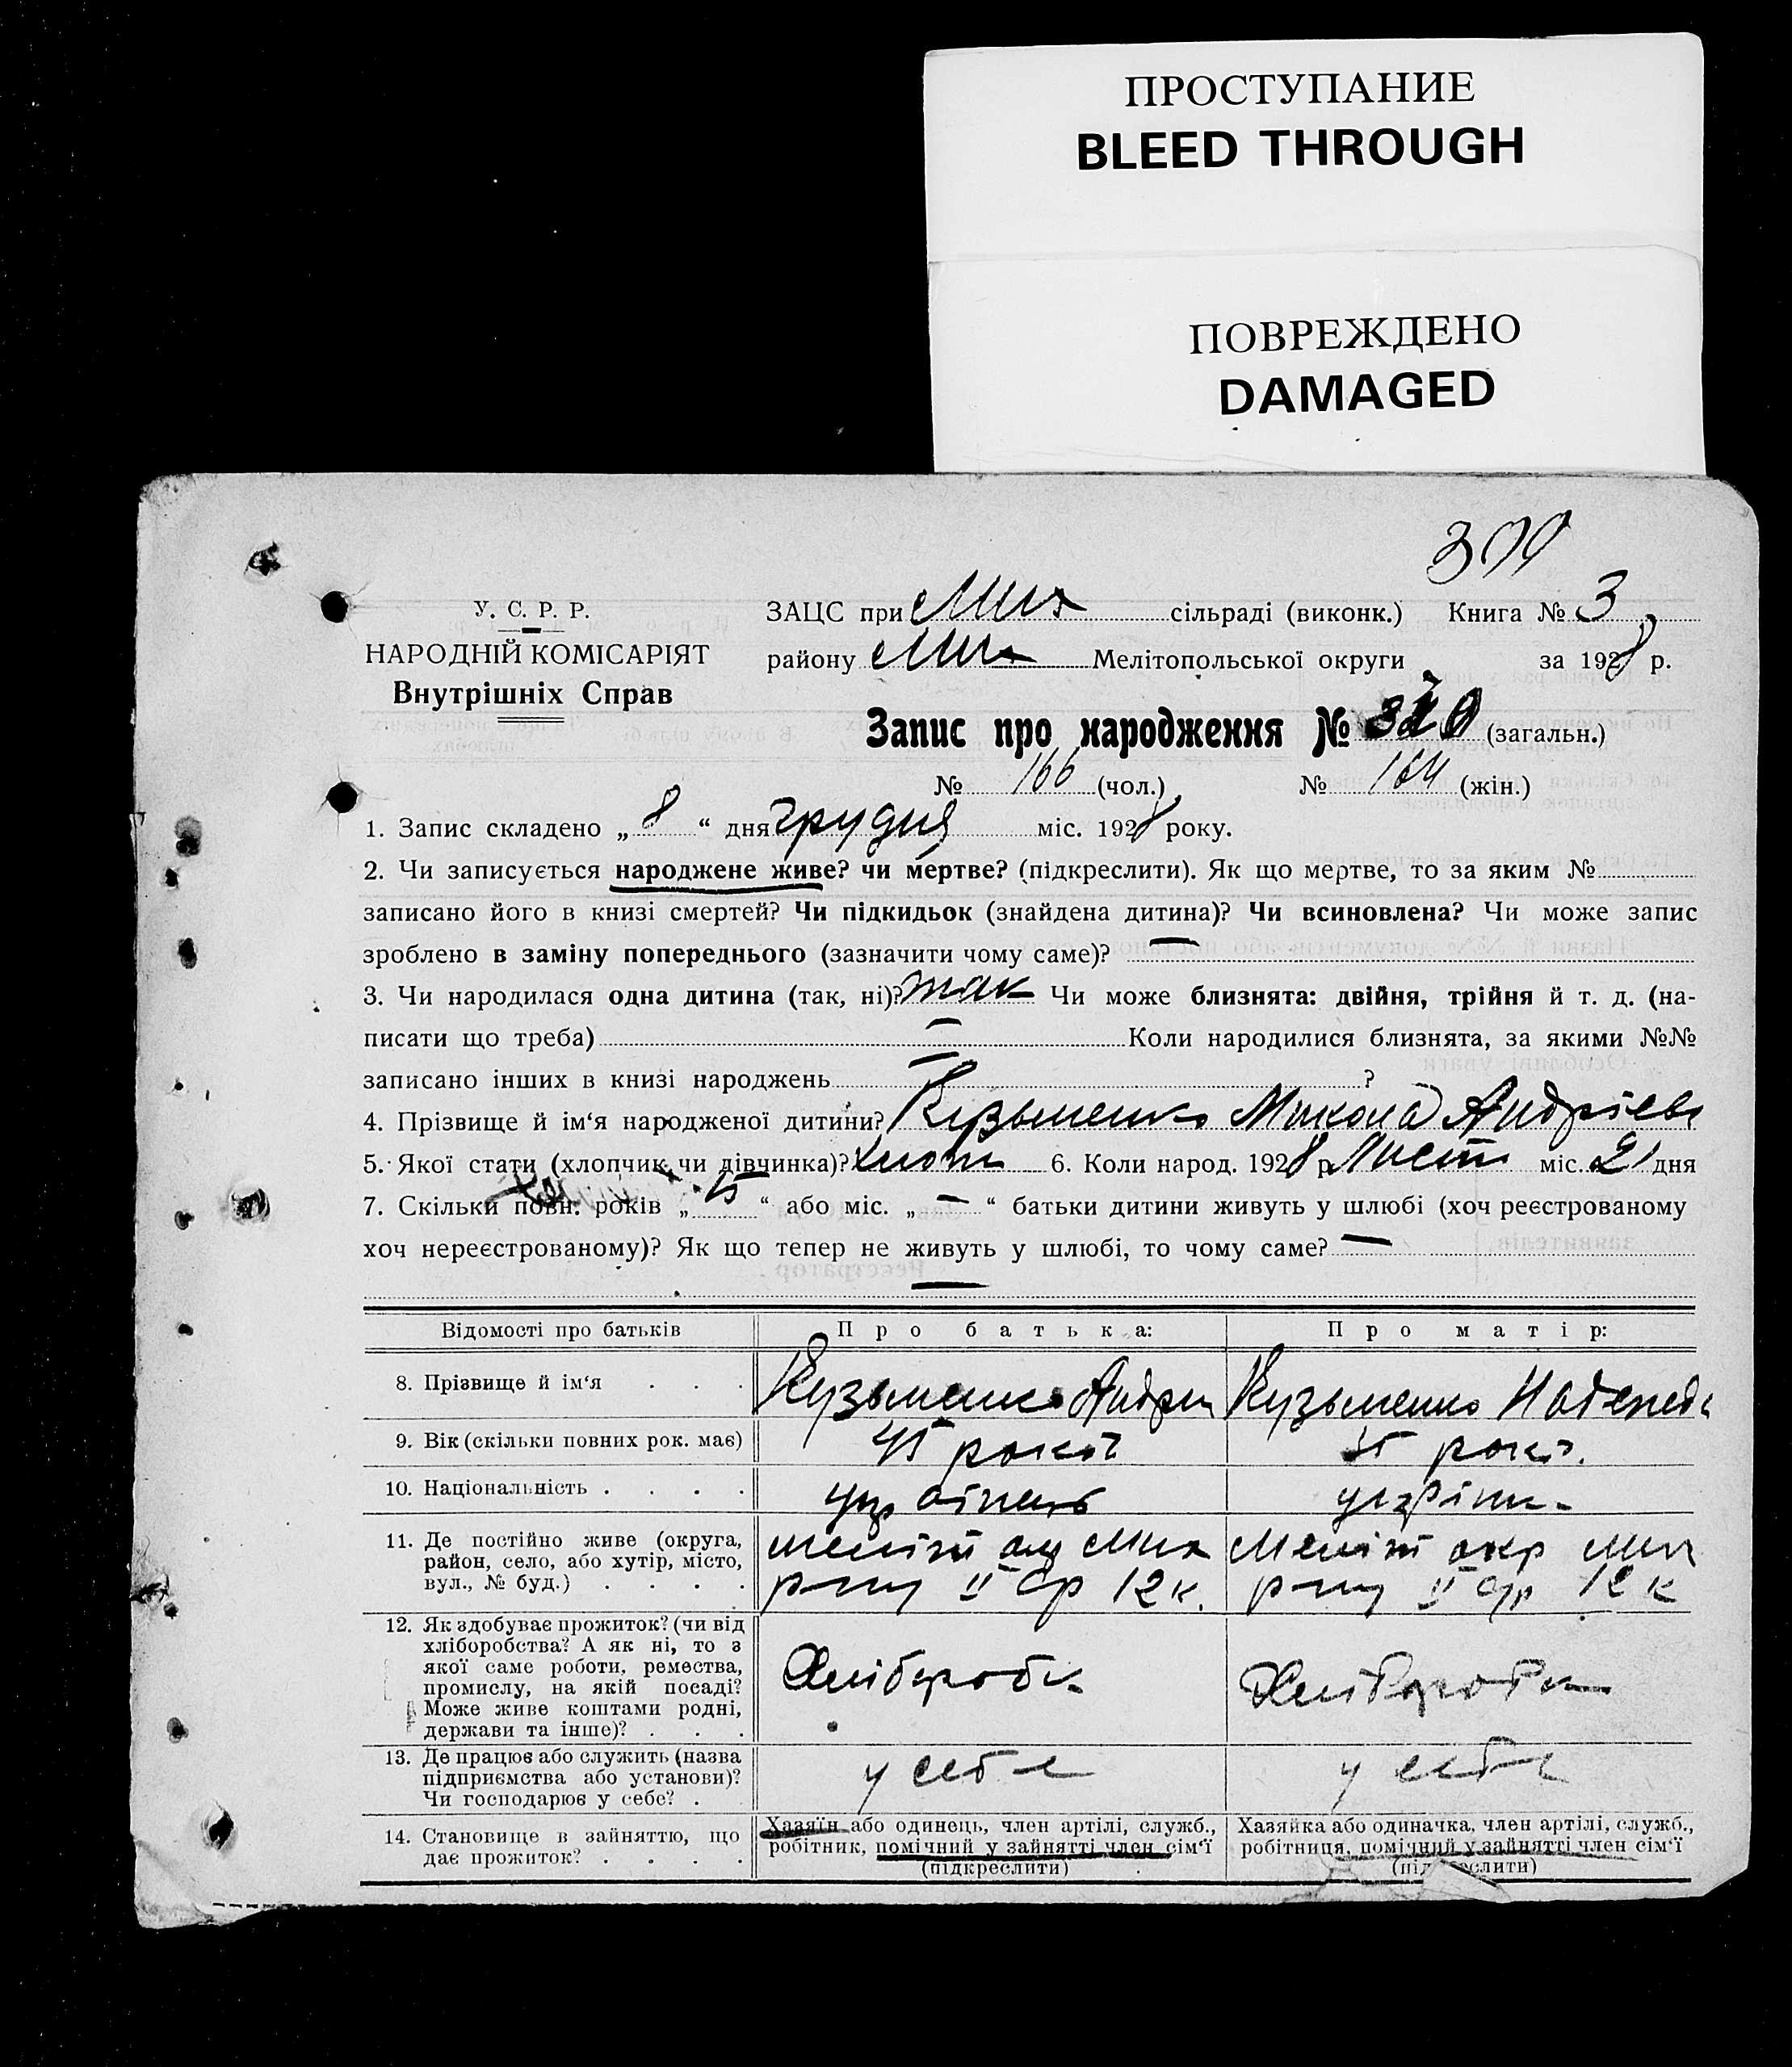 ПРОСТУПАНИЕ
BLEED THROUGH
ПОВРЕЖДЕНО
DAMAGED
У. С. Р. Р.
НАРОДНІЙ КОМІСАРІЯТ
Внутрішніх Справ
ЗАЦС при Мих сільраді (виконк.) Книга № 3
району Мих Мелітопольської округи за 1928 р.
Запис про народження № (загальн.)
№ 166 (чол.) № 164 (жін.)
1. Запис складено „ 8 “ дня грудня міс. 1928 року.
2. Чи записується народжене живе? чи мертве? (підкреслити). Як що мертве, то за яким №
записано його в книзі смертей? Чи підкидьок (знайдена дитина)? Чи всиновлена? Чи може запис
зроблено в заміну попереднього (зазначити чому саме)? —
3. Чи народилася одна дитина (так, ні)? так Чи може близнята: двійня, трійня й т. д. (на-
писати що треба) — Коли народилися близнята, за якими №№
записано інших в книзі народжень — ?
4. Прізвище й ім‘я народженої дитини? Кузьменко Микола Андрієв
5. Якої стати (хлопчик чи дівчинка)? хлоп 6. Коли народ. 1928 р. Лист міс. 21 дня
7. Скільки повн. років „ 15 “ або міс. „ — “ батьки дитини живуть у шлюбі (хоч реєстрованому
хоч нереєстрованому)? Як що тепер не живуть у шлюбі, то чому саме? —
—
Відомості про батьків Про батька: Про матір:
8. Прізвище й ім‘я . . . Кузьменко Андрій Кузьменко
9. Вік (скільки повних рок. має) 45 років років
10. Національність . . . . українець україн
11. Де постійно живе (округа, Меліт окр Мих Меліт окр Мих
район, село, або хутір, місто, р-ну II 12 к. р-ну II 12 к
вул., № буд.) . . . .
12. Як здобуває прожиток? (чи від
хліборобства? А як ні, то з
якої саме роботи, ремества, Хлібороб Хлібороб
промислу, на якій посаді?
Може живе коштами родні,
держави та інше)? . . .
13. Де працює або служить (назва
підприємства або установи)? у себе у себе
Чи господарює у себе? .
14. Становище в зайняттю, що
дає прожиток? . . . .
Хазяїн або одинець, член артілі, служб.,
робітник, помічний у зайнятті член сім‘ї
(підкреслити)
Хазяйка або одиначка, член артілі, служб.,
робітниця, помічний у зайнятті член сім‘ї
(підкреслити)